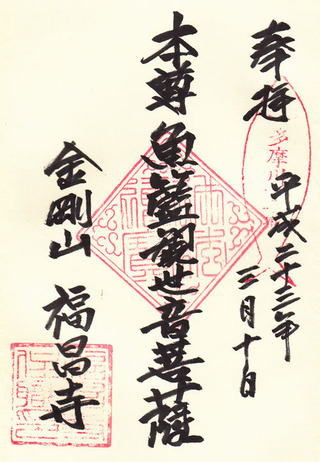 奉拝
平成二十三年
三月十日
本尊 魚籃観世音菩薩
金剛山 福昌寺